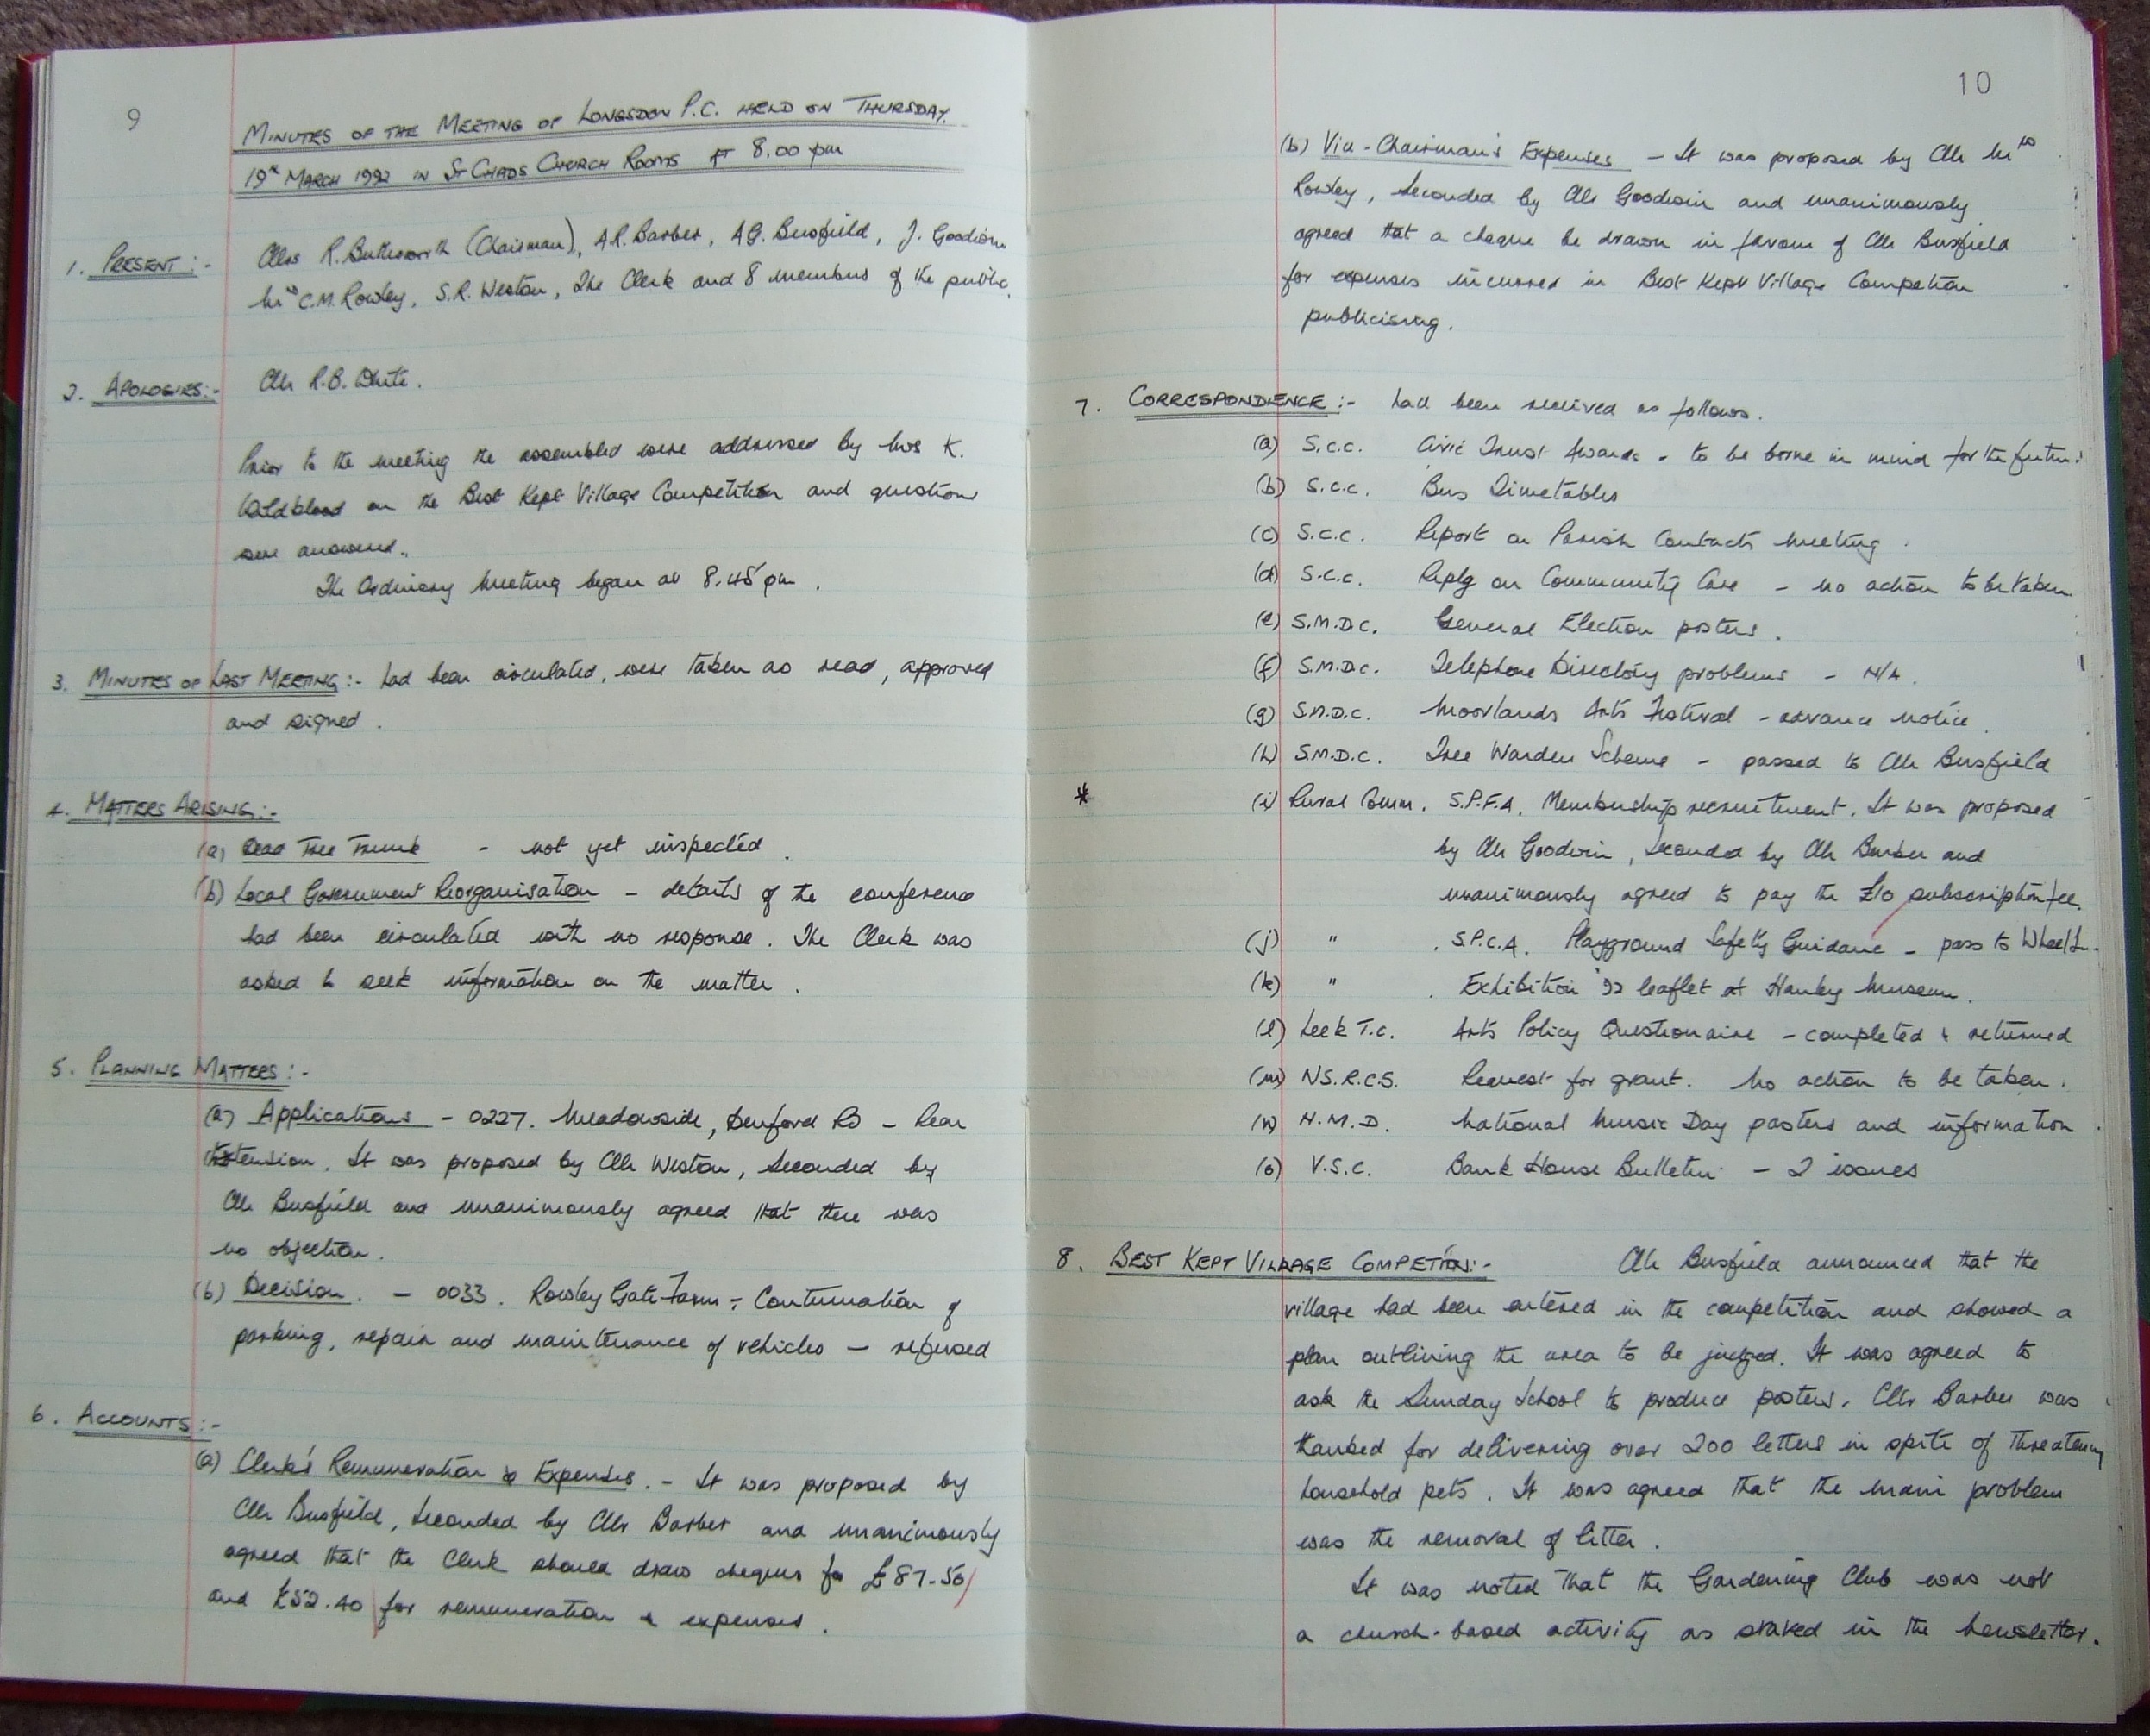 9
MINUTES OF THE MEETING OF LONGSDON P.C. HELD ON THURSDAY
19th MARCH 1992 IN St CHADS CHURCH ROOMS AT 8.00 pm
1. PRESENT :- Cllrs R. Butterworth (Chairman), A.R. Barber, A.G. Busfield, J. Goodwin
Mrs C.M. Rowley, S.R. Weston, The Clerk and 8 members of the public.
2. APOLOGIES:- Cllr R.B. White.
Prior to the meeting the assembled were addressed by Mrs K.
Wildblood on the Best Kept Village Competition and questions
were answered.
The Ordinary Meeting began at 8.45 pm.
3. MINUTES OF LAST MEETING :- had been circulated, were taken as read, approved
and signed.
4. MATTERS ARISING:-
(a) Dead Tree Trunk - not yet inspected.
(b) Local Government Reorganisation - details of the conference
had been circulated with no response. The Clerk was
asked to seek information on the matter.
5. PLANNING MATTERS :-
(a) Applications - 0227. Meadowside, Denford Rd - Rear
Extension. It was proposed by Cllr Weston, seconded by
Cllr Busfield and unanimously agreed that there was
no objection.
(b) Decision. - 0033. Rowley Gate Farm - Continuation of
parking, repair and maintenance of vehicles - refused
6. ACCOUNTS :-
(a) Clerk's Remuneration & Expenses. - It was proposed by
Cllr Busfield, seconded by Cllr Barber and unanimously
agreed that the Clerk should draw cheques for £87-50
and £52.40 for remuneration & expenses.
10
(b) Vice-Chairman's Expenses - It was proposed by Cllr Mrs
Rowley, seconded by Cllr Goodwin and unanimously
agreed that a cheque be drawn in favour of Cllr Busfield
for expenses incurred in Best Kept Village Competion
publicising.
7. CORRESPONDENCE :- had been received as follows.
(a) S.C.C. Civic Trust Awards - to be borne in mind for the future.
(b) S.C.C. Bus Timetables
(c) S.C.C. Report on Parish Contacts Meeting.
(d) S.C.C. Reply on Community Care - no action to be taken
(e) S.M.D.C. General Election posters.
(f) S.M.D.C. Telephone Directory problems - N/A.
(g) S.M.D.C. Moorlands Arts Festival - advance notice
(h) S.M.D.C. Tree Warden Scheme - passed to Cllr Busfield
* (i) Rural Comm. S.P.F.A. Membership recruitment. It was proposed
by Cllr Goodwin, seconded by Cllr Barber and
unanimously agreed to pay the £10 subscription fee.
(j) " . S.P.C.A. Playground Safety Guidance - pass to
(k) " . Exhibition '92 leaflet at Hanley Museum.
(l) Leek T.C. Arts Policy Questionaire - completed & returned
(m) N.S.R.C.S. Request for grant. No action to be taken.
(n) N.M.D. National Music Day posters and information.
(o) V.S.C. Bank House Bulletin - 2 issues
8. BEST KEPT VILLAGE COMPETION:- Cllr Busfield announced that the
village had been entered in the competition and showed a
plan outlining the area to be judged. It was agreed to
ask the Sunday School to produce posters. Cllr Barber was
thanked for delivering over 200 letters in spite of threatening
household pets. It was agreed that the main problem
was the removal of litter.
It was noted that the Gardening Club was not
a church-based activity as stated in the Newsletter.